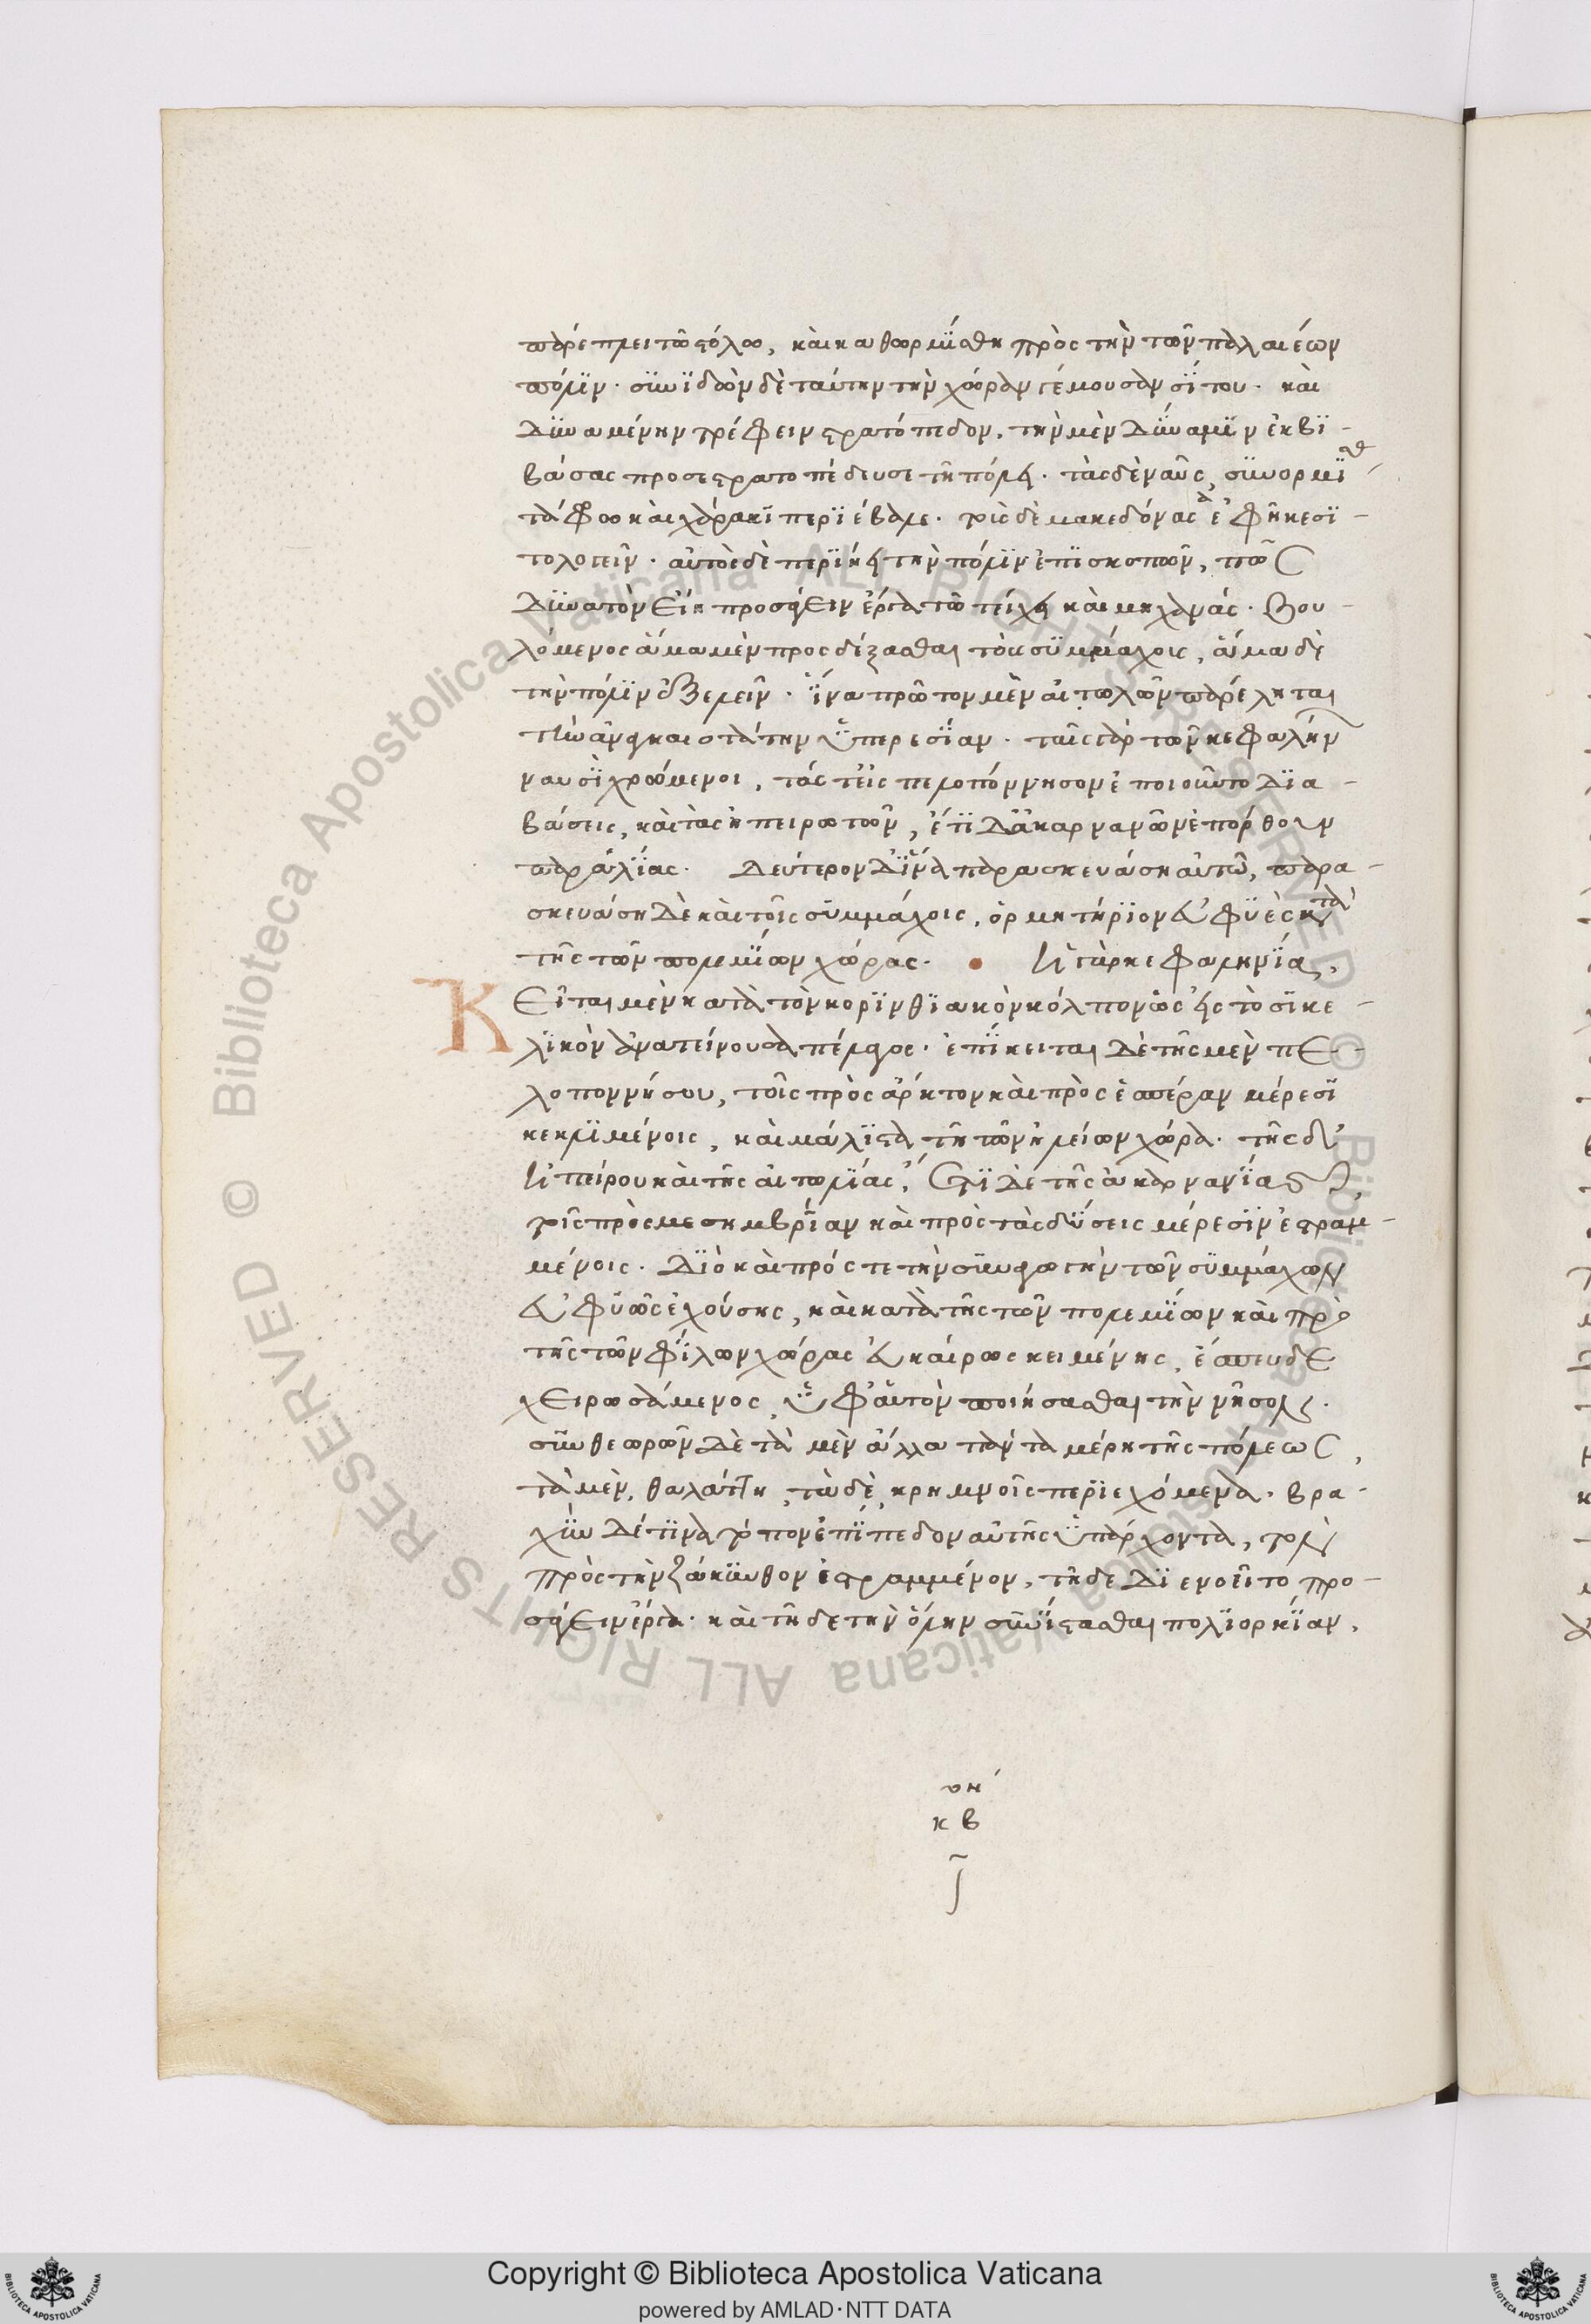 παρέπλει τῷ στόλῳ, καὶ καθωρμίσθη πρὸς τὴν τῶν παλαιέων
πόλιν. συνιδὼν δὲ ταύτην τὴν χώραν γέμουσαν σίτου. καὶ
δυναμένην τρέφειν στρατόπεδον, τὴν μὲν δύναμιν ἐκβι-
βάσας προσεστρατοπέδευσε τῇ πόλει. τὰς δὲ ναῦς συνορμι
τάφρῳ καὶ χάρακι περιέβαλε. τοὺς δὲ μακεδόνας ἐφῆκε σι-
τολογεῖν. αὐτὸς δὲ περιῄει τὴν πόλιν ἐπισκοπῶν, πῶς
δυνατὸν εἴη προσάγειν ἔργα τῷ τείχει καὶ μηχανάς. βου-
λόμενος ἅμα μὲν προσδέξασθαι τοὺς συμμάχους, ἅμα δὲ
τὴν πόλιν ἐξελεῖν. ἵνα πρῶτον μὲν αἰτωλῶν παρέληται
τὴν ἀναγκαιοτάτην ὑπερεσίαν. ταῖς γὰρ τῶν κεφαλήνων
ναυσὶ χρώμενοι, τάς τ' εἰς πελοπόννησον ἐποιοῦντο δια-
βάσεις, καὶ τὰς ἠπειρωτῶν, ἔτι δ' ἀκαρνανῶν ἐπόρθουν
παραλίας. δεύτερον δ' ἵνα παρασκευάσῃ αὑτῷ, παρα-
σκευάσῃ δὲ καὶ τοῖς συμμάχοις, ὁρμητήριον εὐφυὲς κατὰ
τῆς τῶν πολεμίων χώρας. ἡ γὰρ κεφαληνία,
Κεῖται μὲν κατὰ τὸν κορινθιακὸν κόλπον ὡς εἰς τὸ σικε-
λικὸν ἀνατείνουσα πέλαγος. ἐπίκειται δὲ τῆς μὲν πε-
λοποννήσου, τοῖς πρὸς ἄρκτον καὶ πρὸς ἑσπέραν μέρεσι
κεκλιμένοις, καὶ μάλιστα τῇ τῶν ἠλείων χώρᾳ. τῆς δ'
ἠπείρου καὶ τῆς αἰτωλίας, ἔτι δὲ τῆς ἀκαρνανίας
τοῖς πρὸς μεσημβρίαν καὶ πρὸς τὰς δύσεις μέρεσιν ἐστραμ-
μένοις. διὸ καὶ πρός τε τὴν συναγωγὴν τῶν συμμάχων
εὐφυῶς ἐχούσης, καὶ κατὰ τῆς τῶν πολεμίων καὶ πρὸ
τῆς τῶν φίλων χώρας εὐκαίρως κειμένης, ἔσπευδε
χειρωσάμενος ὑφ' αὑτὸν ποιήσασθαι τὴν νῆσον.
συνθεωρῶν δὲ τὰ μὲν ἄλλα πάντα μέρη τῆς πόλεως,
τὰ μὲν, θαλάττῃ, τὰ δὲ, κρημνοῖς περιεχόμενα. βρα-
χὺν δέ τινα τόπον ἐπίπεδον αὐτῆς ὑπάρχοντα, τὸν
πρὸς τὴν ζάκυνθον ἐστραμμένον, τῇδε διενοεῖτο προ-
σάγειν ἔργα. καὶ τῇδε τὴν ὅλην συνίστασθαι πολιορκίαν.
κβ